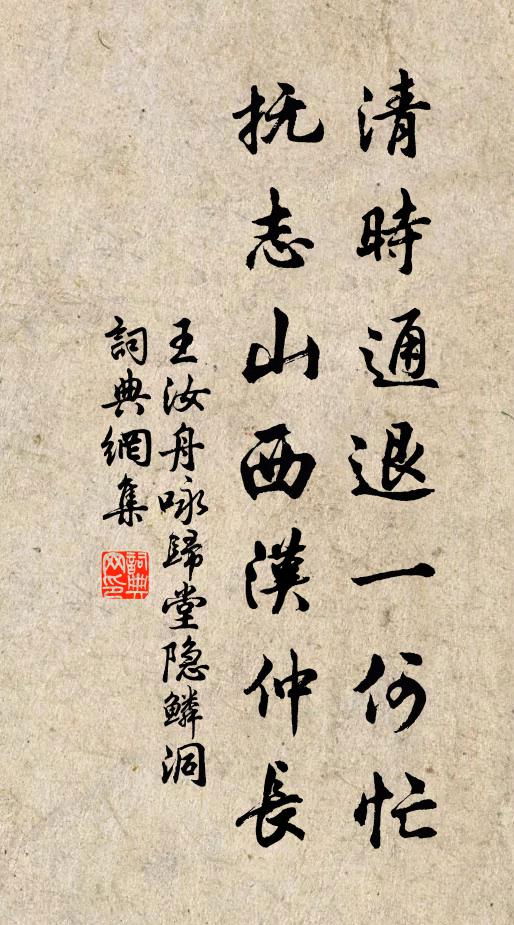 清時通退一何忙
抚志山西漢仲長
王汝舟咏歸堂隐鳞洞
詞典網集
詞典網印